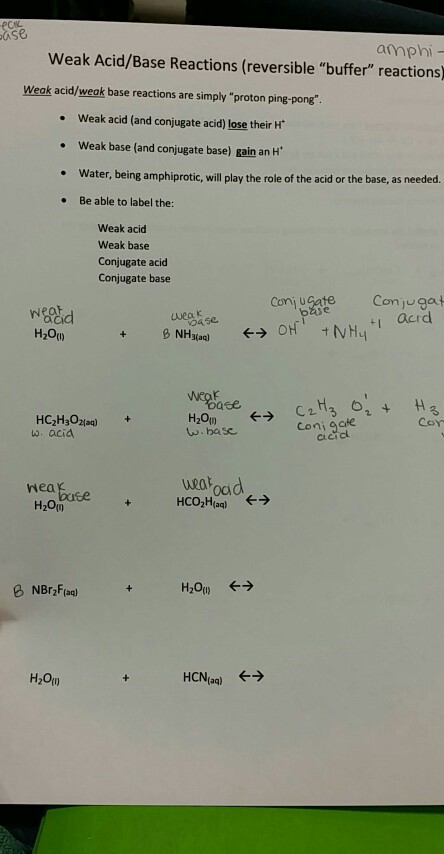 base
amphi-
Weak Acid/Base Reactions (reversible "buffer" reactions)
Weak acid/weak base reactions are simply "proton ping-pong".
• Weak acid (and conjugate acid) lose their H⁺
• Weak base (and conjugate base) gain an H⁺
• Water, being amphiprotic, will play the role of the acid or the base, as needed.
• Be able to label the:
Weak acid
Weak base
Conjugate acid
Conjugate base
weak acid weak base conjugate base Conjugat acid
H₂O(l) + B NH₃(aq) ↔ OH⁻¹ + NH₄⁺¹
Weak base
HC₂H₃O₂(aq) + H₂O(l) ↔ C₂H₃O₂⁻¹ + H₃
w. acid w. base conigate acid con
weak base weak acid
H₂O(l) + HCO₂H(aq) ↔
B NBr₂F(aq) + H₂O(l) ↔
H₂O(l) + HCN(aq) ↔